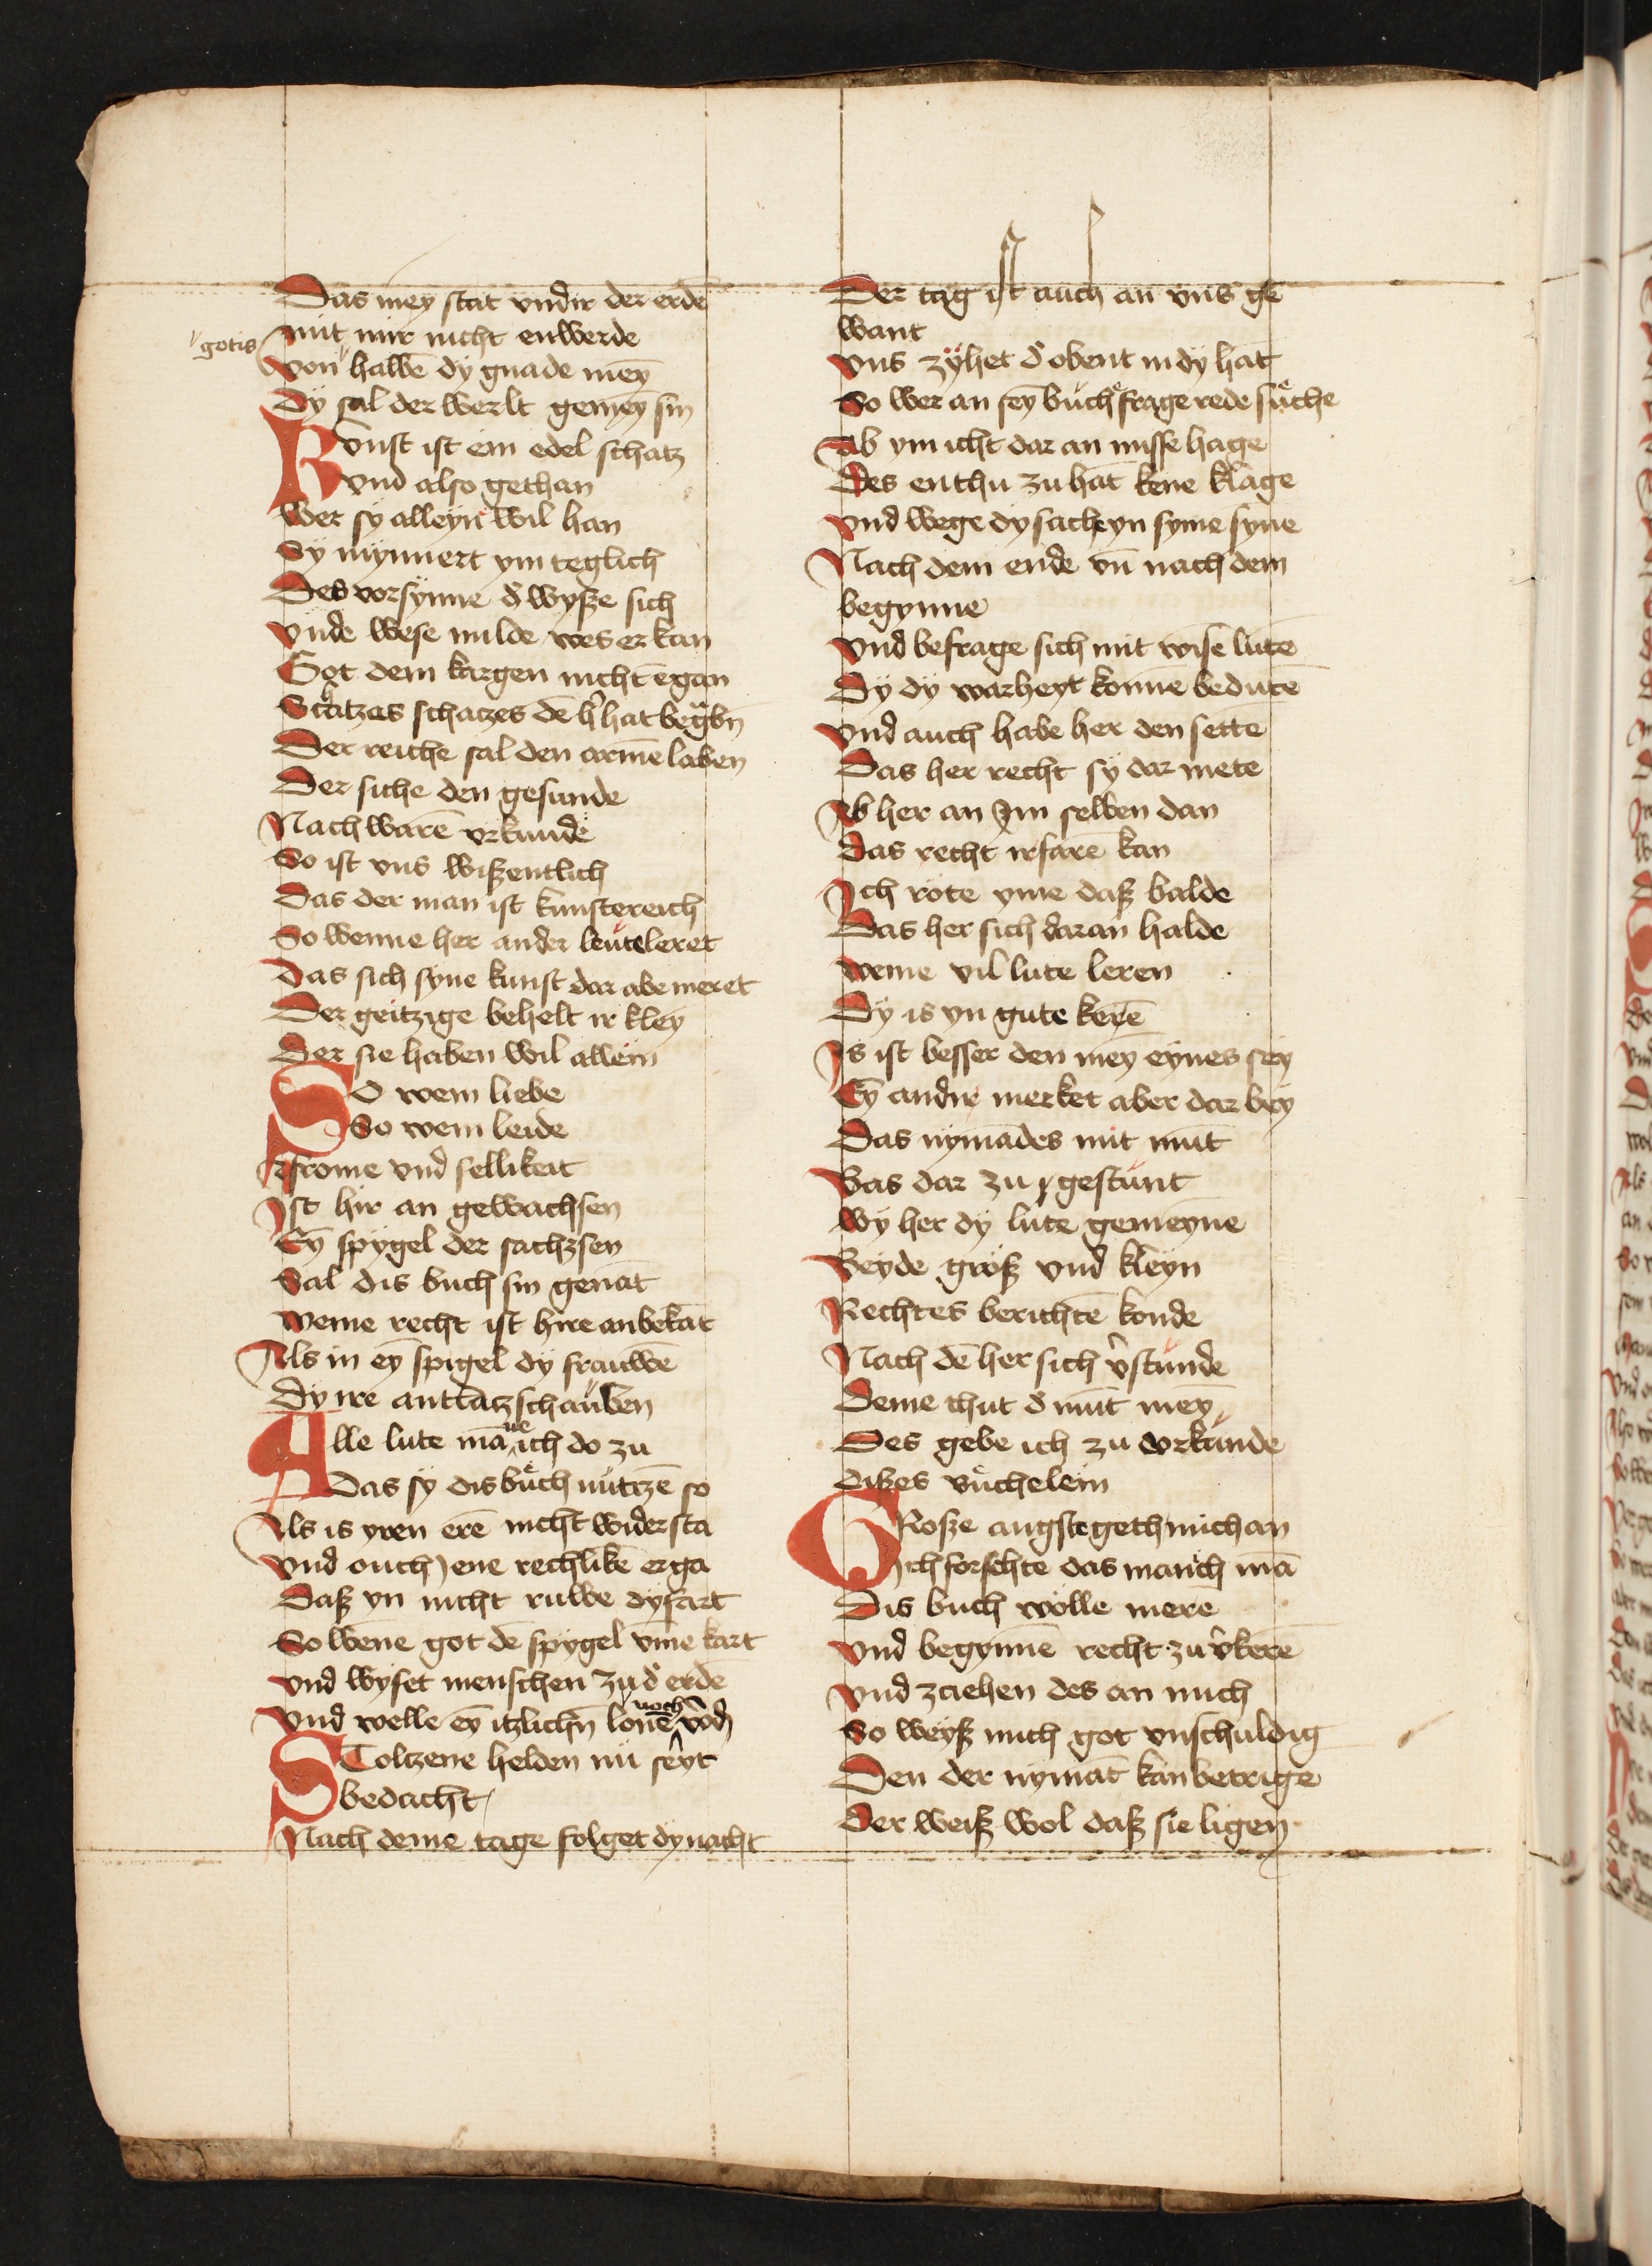 Das mey stat vndir der erdē
mit mir nicht enwerde
gotis
von halbē dy gnade meȳ
Dy sal der werlt gemeȳ sin
Kvnst ist ein edel schatz
vnd also gethan
Wer sy alleyn wil han
Sy mynnert ym teglich
Des vorsynne d̕ wysze sich
vnde wese milde wes er kan
Got dem kargen nicht ēgan
Schatzas schatzes dē h̕ hat begᵃbn̄
Der reiche sal den armē laben
Der siche den gesunde
Nach warē vrkunde
So ist vns wiszentlich
Das der man ist kunstereich
So wenne her ander leute leret
Das sich syne kunst dar abe meret
Der geitzige behelt ir kleȳ
Der sie haben wil allein
SO wem liebe
So wem leide
frome vnd sellikeit
Ist hir an gewachsen
Eȳ spygel der sachzsen
Sal dis buch sin genāt
weme recht ist hire an bekāt
Als in eȳ spigel dy frauwē
Dy ire antlatz schauben
Alle lute māne ich do zu
Das sy dis buͤch nutzē so
Als is yren erē nicht widersta
vnd ouch jene rechlikē erga
Dasz yn nicht ruwe dyfart
So wēne got dē spygel vme kart
vnd wyset menschen zu d̕ erde
Vnd welle eȳ itzlichn̄ lonē noch w̕dē
STolczene helden nu seyt
bedacht
Nach deme tage folget dy nacht
Der tag ist auch an vns ge
want
vns zyhet d̕ obent in dy hāt
So wer an seȳ buch frage rede suͤche
Ab ym icht dar an misse hage
Des enthu zu hāt kene klage
vnd wege dy sache yn syme syne
Nach dem ende vn̄ nach dem
begynne
vnd befrage sich mit wisē lutē
Dy dy warheyt konne bedutē
vnd auch habe her den sette
Das her recht sy dar mete
Ab her an Im selben dan
das recht irfarē kan
Ich rote yme dasz balde
Das her sich daran halde
weme vil lute leren
Dy is yn gute kerē
Is ist besser den meȳ eynes sey
Eȳ andir merket aber dar bey
Das nymādes mit mūt
Bas dar zu gestunt
wy her dy lute gemeyne
Beyde grosz vnd kleyn
Rechtes berichtē konde
Nach dē her sich v̕stunde
Deme thut d̕ mut meȳ
Des gebe ich zu vrkunde
diszes vuͤchelein
GRosze angste geth mich an
Ich forschte das manch mā
Dis buch wolle merē
vnd begynnē recht zu v̕kerē
vnd zciehen des an mich
So weysz mich got vnschuldig
Den der nymāt kan betrige
Der weisz wol dasz sie ligen